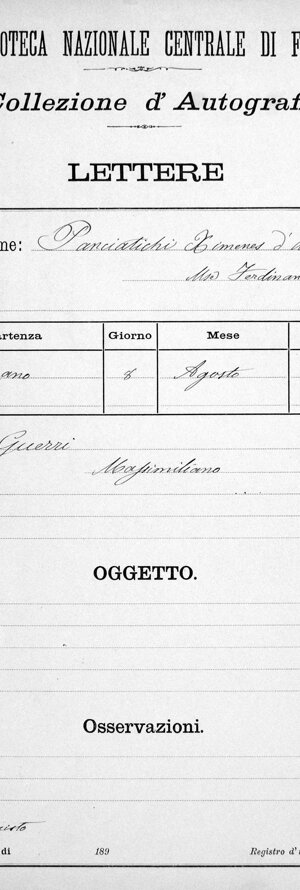 OTECA NAZIONALE CENTRALE DI F
Collezione d' Autografi
LETTERE
ne: Panciatichi Ximenes d'
Mse Ferdinan
artenza Giorno Mese
ano 8 Agosto
Guerri
Massimiliano
OGGETTO.
Osservazioni.
di 189 Registro d'